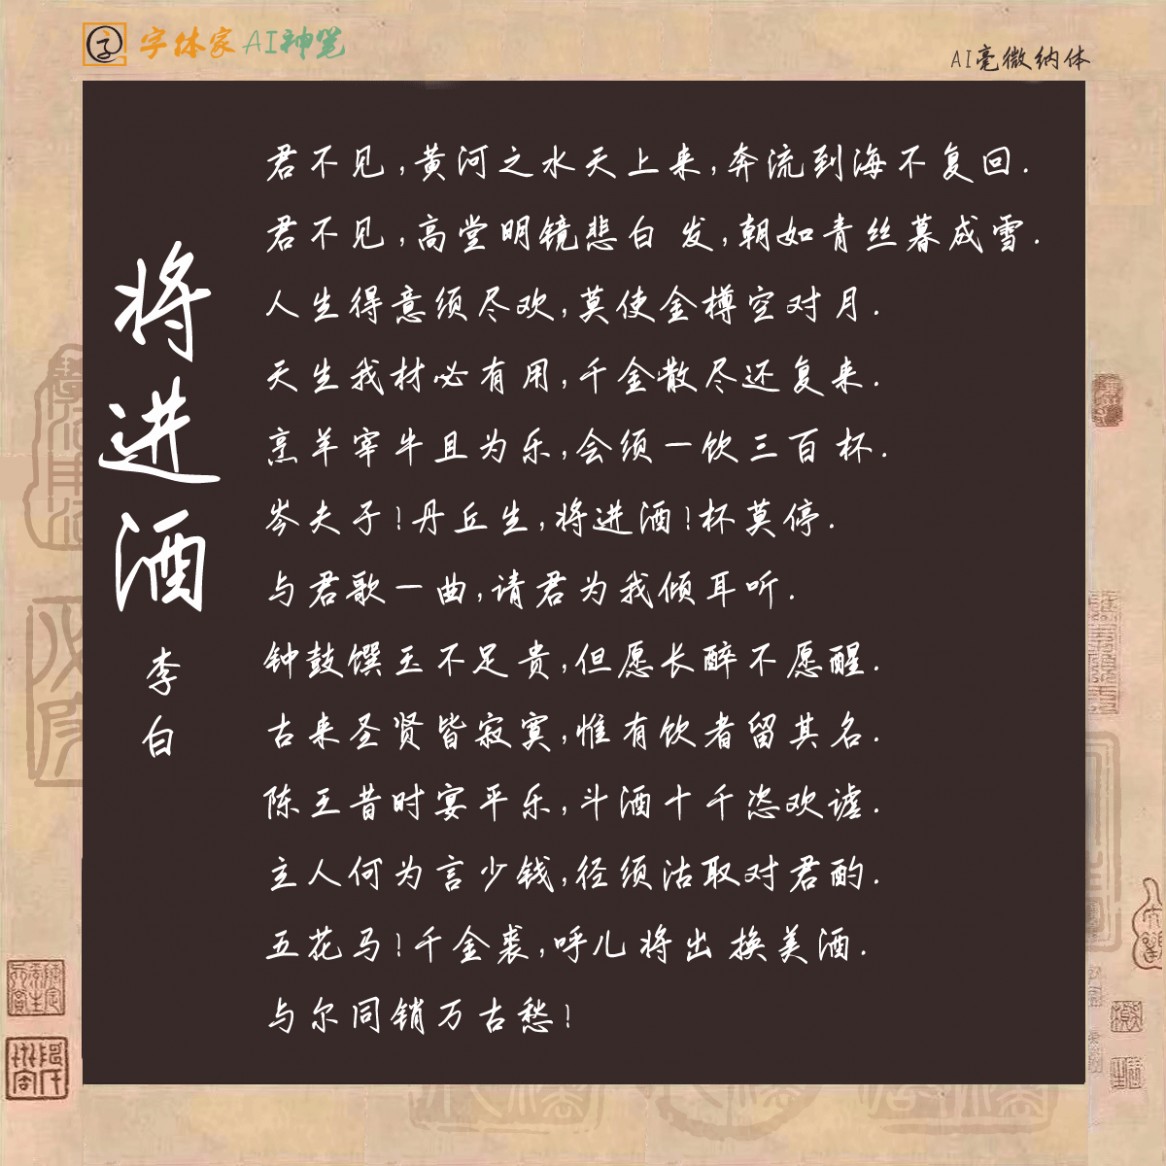 字体家AI神笔
AI毫微纳体
将进酒
李白
君不见,黄河之水天上来,奔流到海不复回.
君不见,高堂明镜悲白发,朝如青丝暮成雪.
人生得意须尽欢,莫使金樽空对月.
天生我材必有用,千金散尽还复来.
烹羊宰牛且为乐,会须一饮三百杯.
岑夫子!丹丘生,将进酒!杯莫停.
与君歌一曲,请君为我倾耳听.
钟鼓馔玉不足贵,但愿长醉不愿醒.
古来圣贤皆寂寞,惟有饮者留其名.
陈王昔时宴平乐,斗酒十千恣欢谑.
主人何为言少钱,径须沽取对君酌.
五花马!千金裘,呼儿将出换美酒.
与尔同销万古愁!